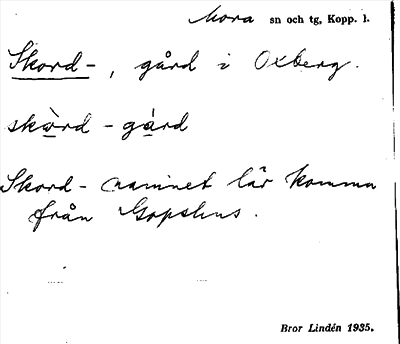 Mora sn och tg, Kopp. l.
Skord-, gård i Oxberg.
skòrd - gàrd
Skord- namnet lär komma
från Gopshus.
Bror Lindén 1935.